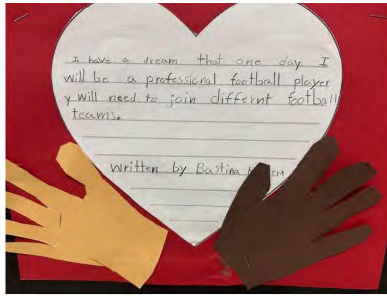 I have a dream that one day I
will be a professional football player
y will need to join differnt football
teams.
Written by Bastina